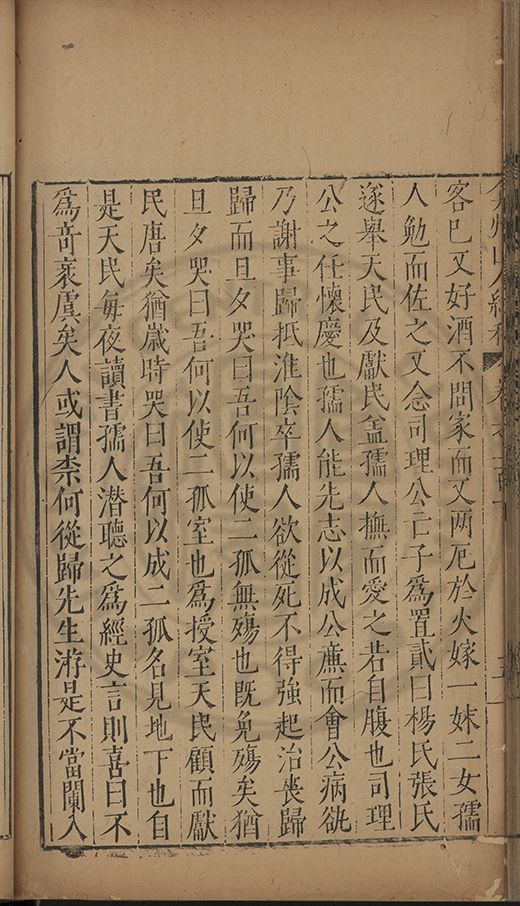 客已又好酒不問家而又两厄於火嫁一妹二女孺
人勉而佐之又念司理公亡子爲置貳曰楊氏張氏
遂舉天民及獻民盖孺人撫而愛之若自腹也司理
公之任懷慶也孺人能先志以成公亷而會公病欲
乃謝事歸抵淮陰卒孺人欲從死不得強起治喪歸
歸而旦夕哭曰吾何以使二孤無殤也旣免殤矣猶
旦夕哭曰吾何以使二孤室也爲授室天民顧而獻
民唐矣猶歲時哭曰吾何以成二孤名見地下也自
是天民每夜讀書孺人潜聽之爲經史言則喜曰不
爲竒衺虞矣人或謂柰何從歸先生游是不當闌人